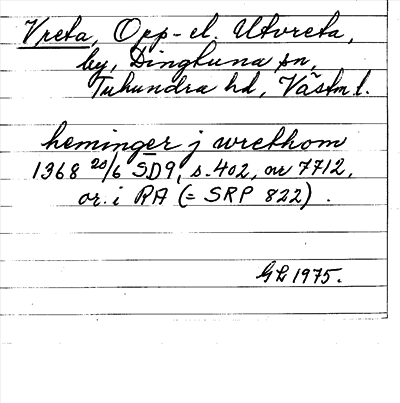 Vreta, Opp- el. Utvreta,
by, Dingtuna sn,
Tuhundra hd, Västm l.
heminger j wrethom
1368 20/6 SD9, s. 402, nr 7712,
or. i RA (= SRP 822).
GL 1975.